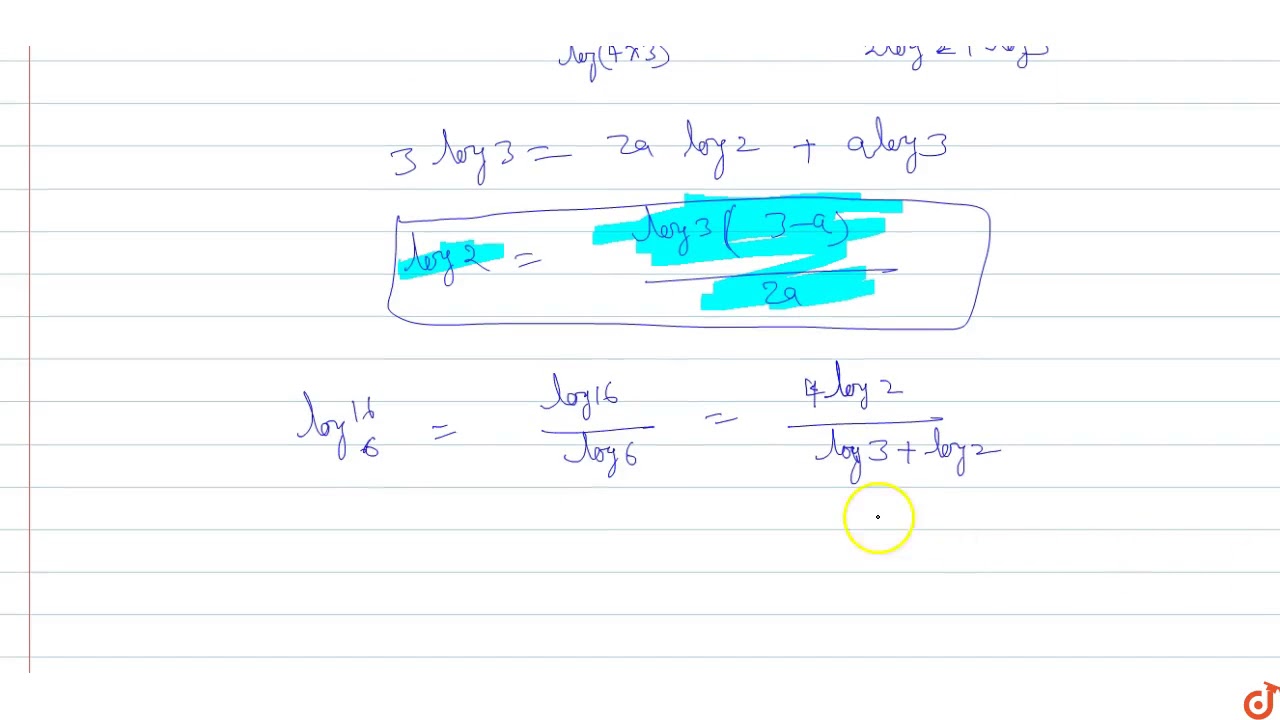 log(4×3)
3 log 3 = 2a log 2 + a log 3
log 2 = log 3 ( 3-a) / 2a
log 16 6 = log 16 / log 6 = 4 log 2 / log 3 + log 2